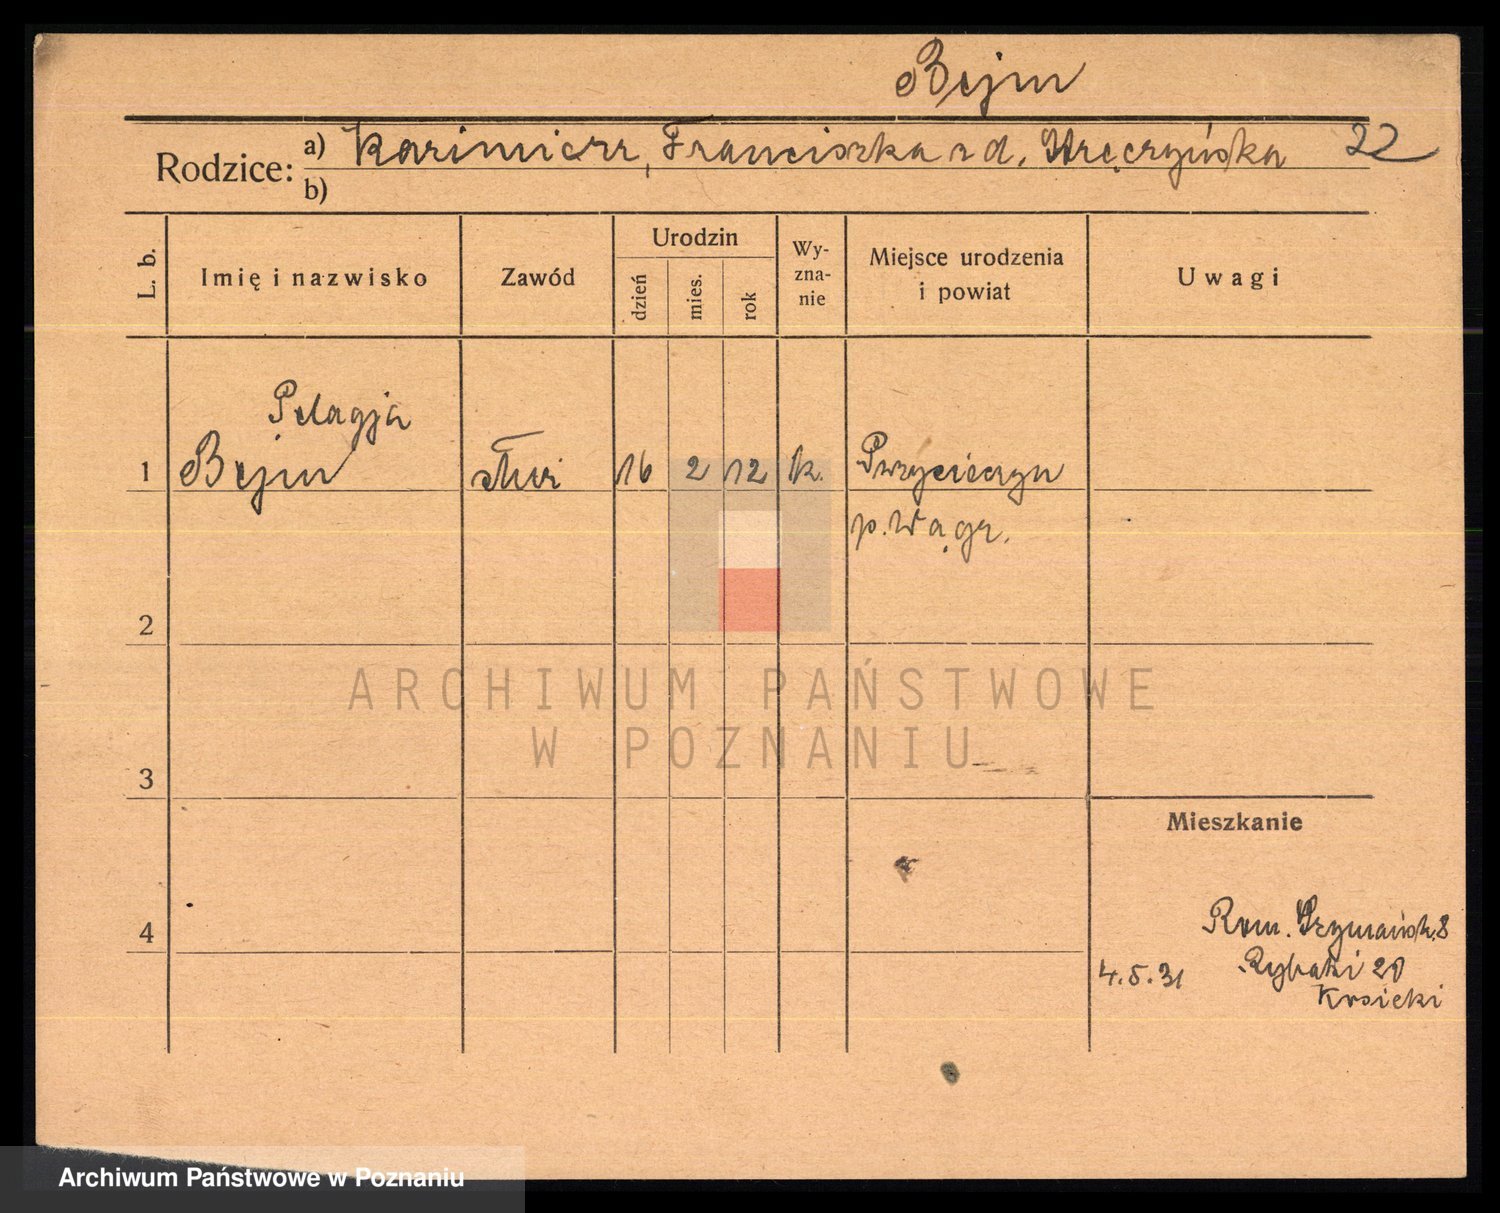 Bejm
Rodzice: a) Kazimierz, Franciszka z d. Stręczyńska 22
b)
L. b.
Imię i nazwisko
Zawód
Urodzin
dzień
mies.
rok
Wy-
zna-
nie
Miejsce urodzenia
i powiat
Uwagi
Pelagja
1 Bejm 16 2 12 k.
p. Wągr.
2
ARCHIWUM PAŃSTWOWE
W POZNANIU
3
Mieszkanie
4
Rom. Szymańsk. 8
4.5.31 Rybaki 20
Kosicki
Archiwum Państwowe w Poznaniu